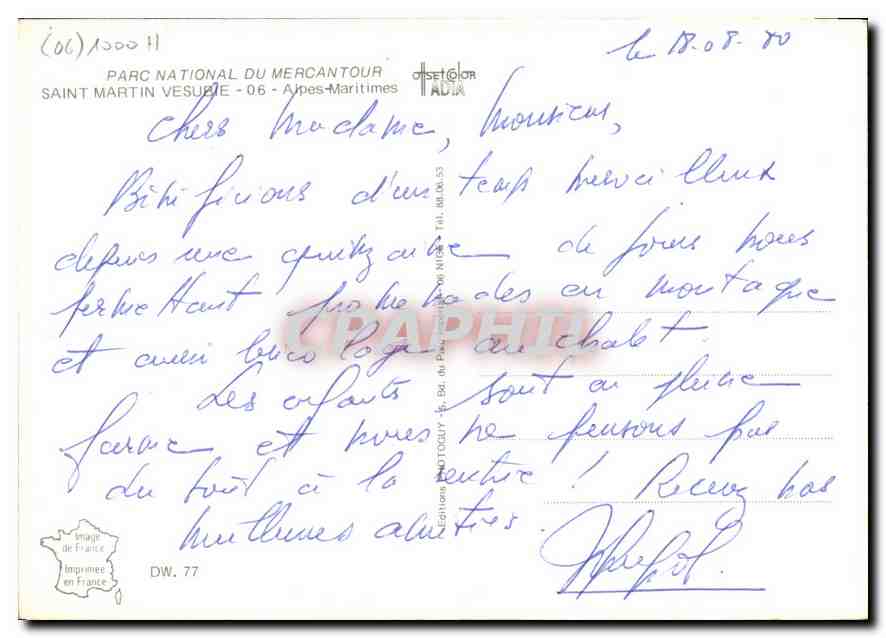 (06) 1000 H
le 18-08-80
PARC NATIONAL DU MERCANTOUR
SAINT MARTIN VESUBIE - 06 - Alpes-Maritimes
OFFSET COLOR
ADIA
Chers Madame, Monsieur,
Bénéficions d'un temps merveilleux
depuis une quinzaine de jours nous
permettant promenades en montagne
et aussi bricolage au chalet.
Les enfants sont en pleine
forme et nous ne pensons pas
du tout à la rentrée ! Recevez nos
meilleures amitiés.
Editions PHOTOGUY - 5, Bd. du Parc Impérial - 06 NICE - Tél. 88.06.53
CPAPHIL
Image
de France
Imprimée
en France
DW. 77